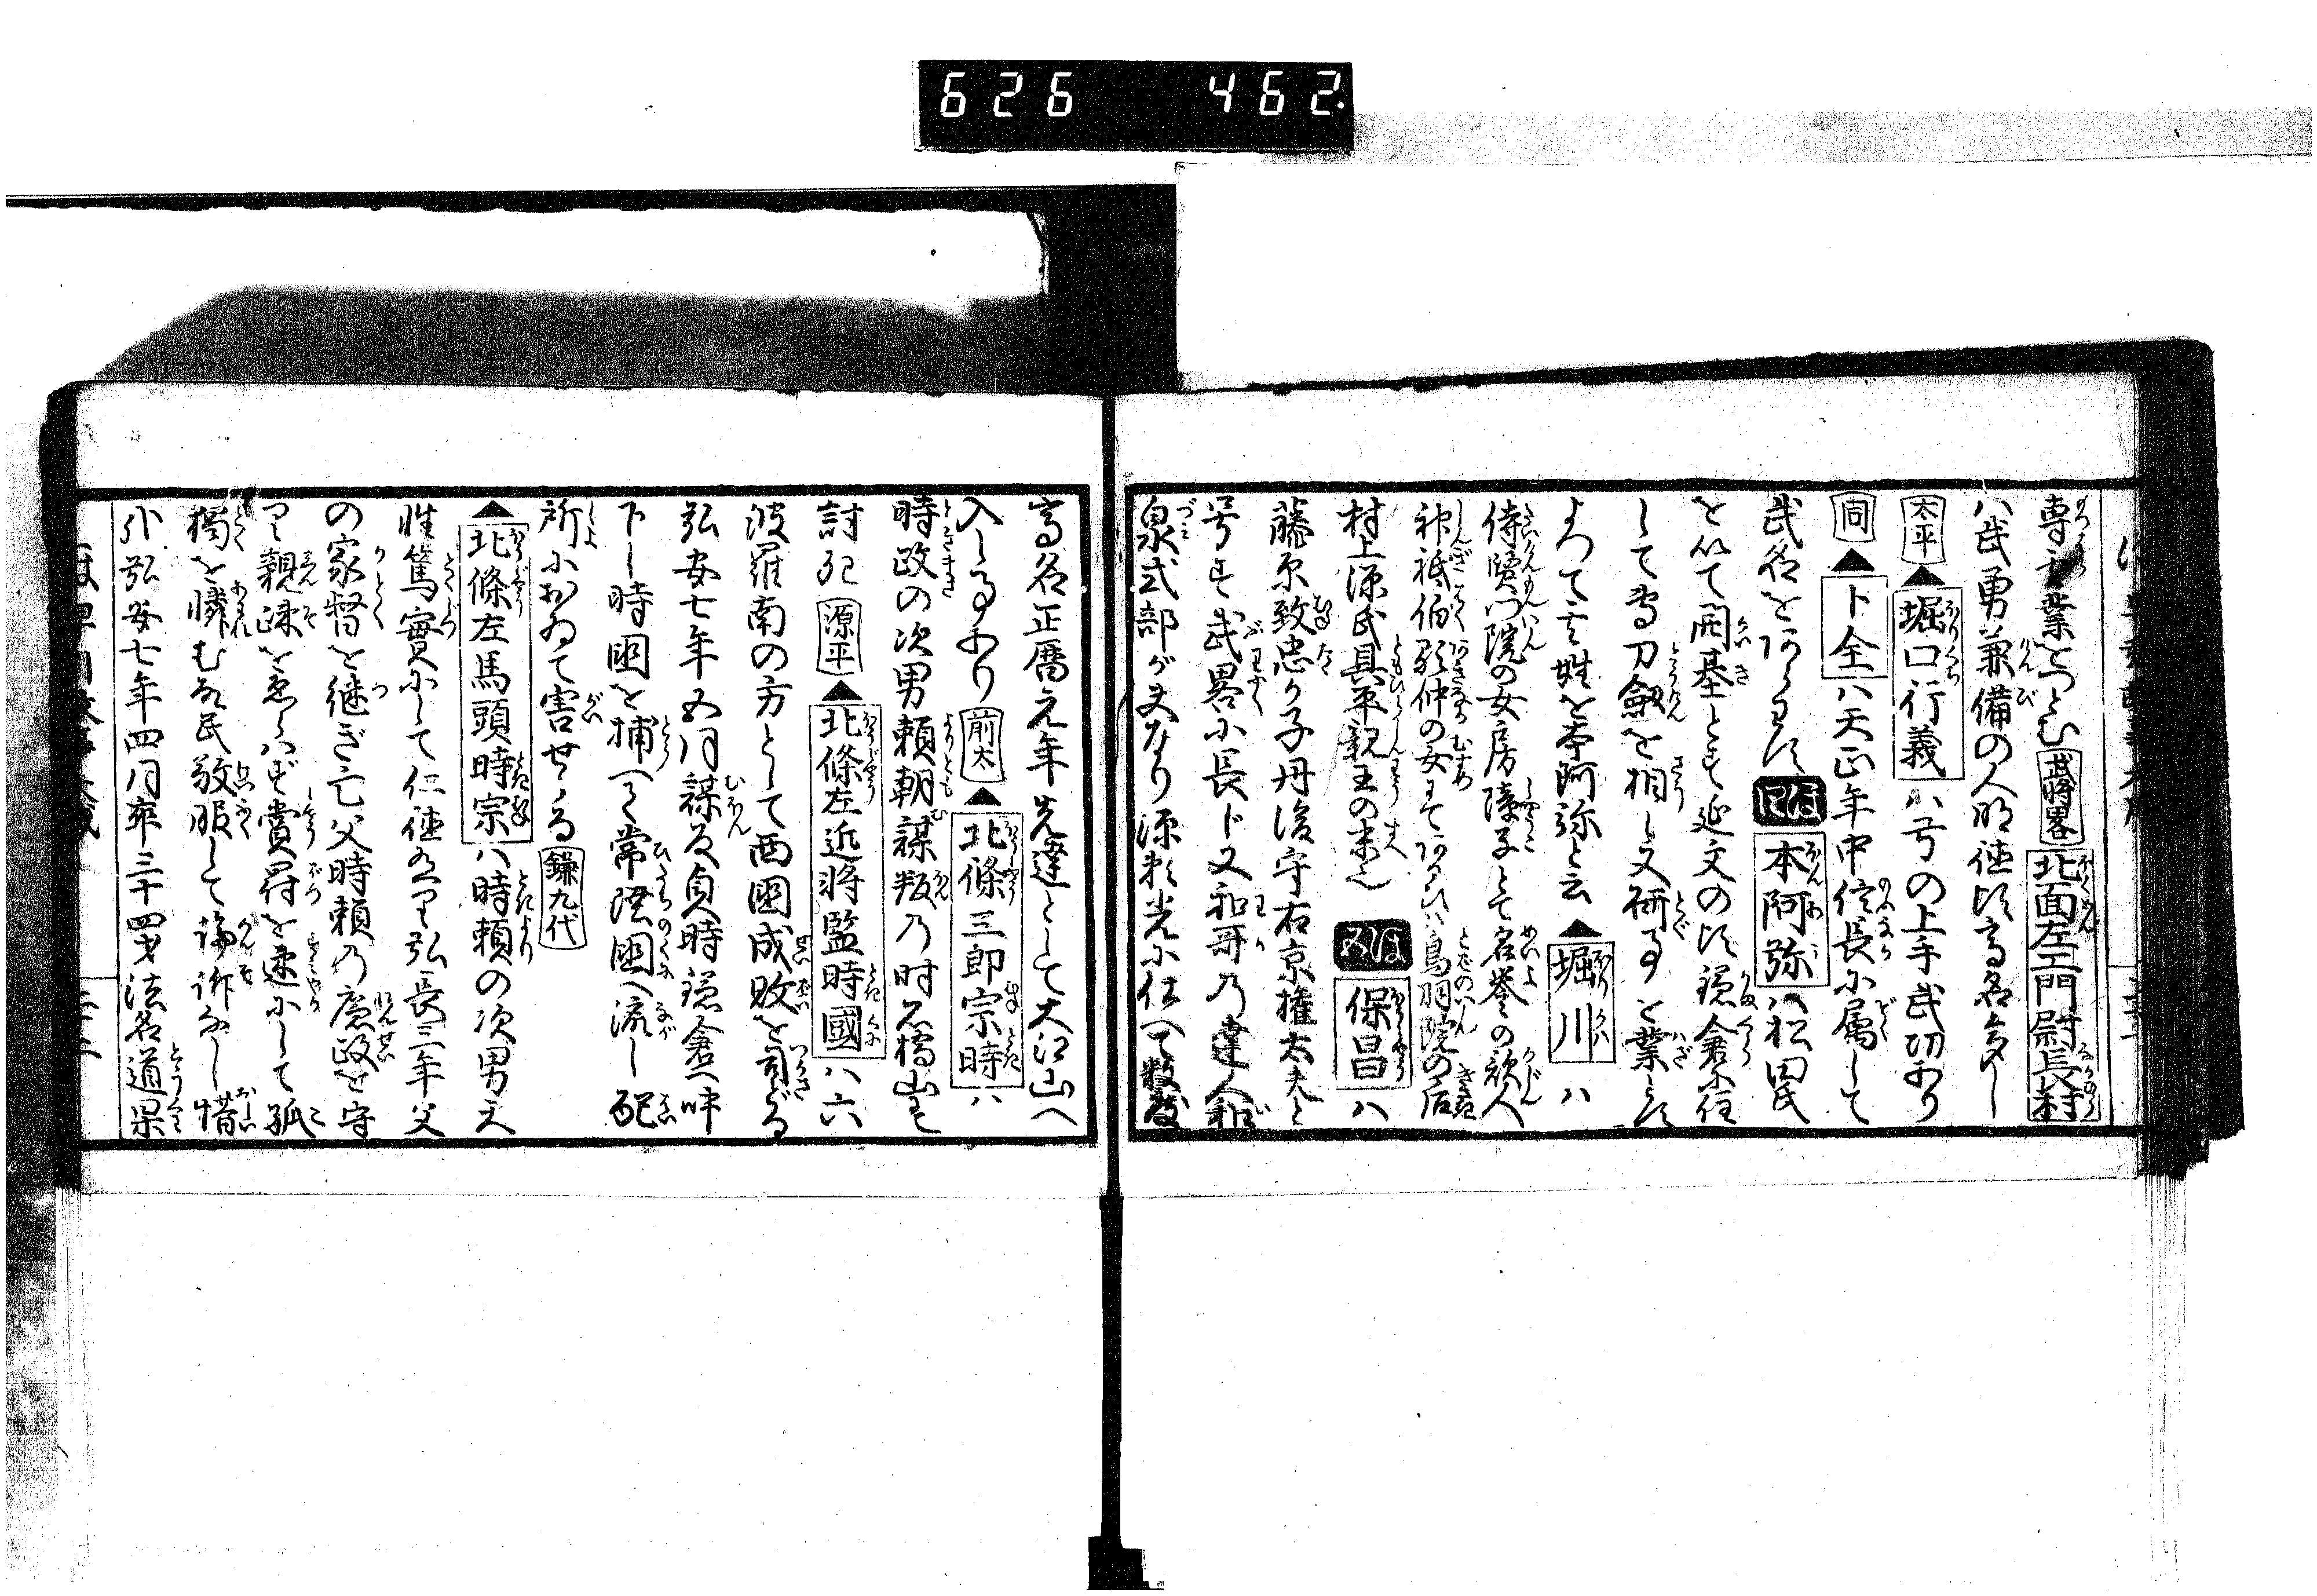 626 462
専ら業とつとむ 武将畧 北面左エ門尉長村
ハ武勇兼備の人明徳頃高名多し
太平 ▲堀口行義ハ弓の上手武功あり
同 ▲ト全ハ天正年中信長に属して
武名をあらはす 本阿弥ハ松田氏
を以て開基とす延文の頃鎌倉に住
して専刀劔を相し又研事を業とす
よつて其姓を本阿弥と云 ▲堀川ハ
待賢門院の女房 名誉の歌人
神祇伯顕仲の女にて 鳥羽院の后
村上源氏具平親王の末也 保昌ハ
藤原致忠が子丹後守右京権太夫と
号す武畧に長じ又和哥の達人和
泉式部が夫なり源頼光に仕へて数度
高名正暦元年先達として大江山へ
入し事あり 前太 ▲北條三郎宗時ハ
時政の次男頼朝謀叛の時石橋山にて
討死 源平 ▲北條左近将監時國ハ六
波羅南の方として西國成敗を司どる
弘安七年 月謀反貞時鎌倉へ呼
下し時國を捕へて常陸國へ流し配
所において害せらる 鎌九代
▲北條左馬頭時宗ハ時頼の次男天
性篤實にして仁徳 弘長三年父
の家督を継ぎ亡父時頼の廉政を守
て親疎を ハず賞罸を速にして孤
獨を憐む 民敬服して 惜
弘安七年四月卒三十四才法名道杲